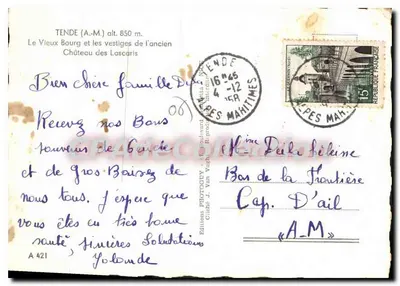 TENDE (A.-M.) alt. 850 m.
Le Vieux Bourg et les vestiges de l'ancien
Château des Lascaris
Bien chère famille
Recevez nos Bons
souvenir de
et de Gros Baisers de
nous tous. J'espère que
vous êtes en très bonne
santé, sincères Salutations
Yolande
A 421
06
TENDE
16H45
4-12
1958
ALPES MARITIMES
ALPES MARITIMES
15F
Mme
Bar de la Frontière
Cap. D'ail
"A-M"